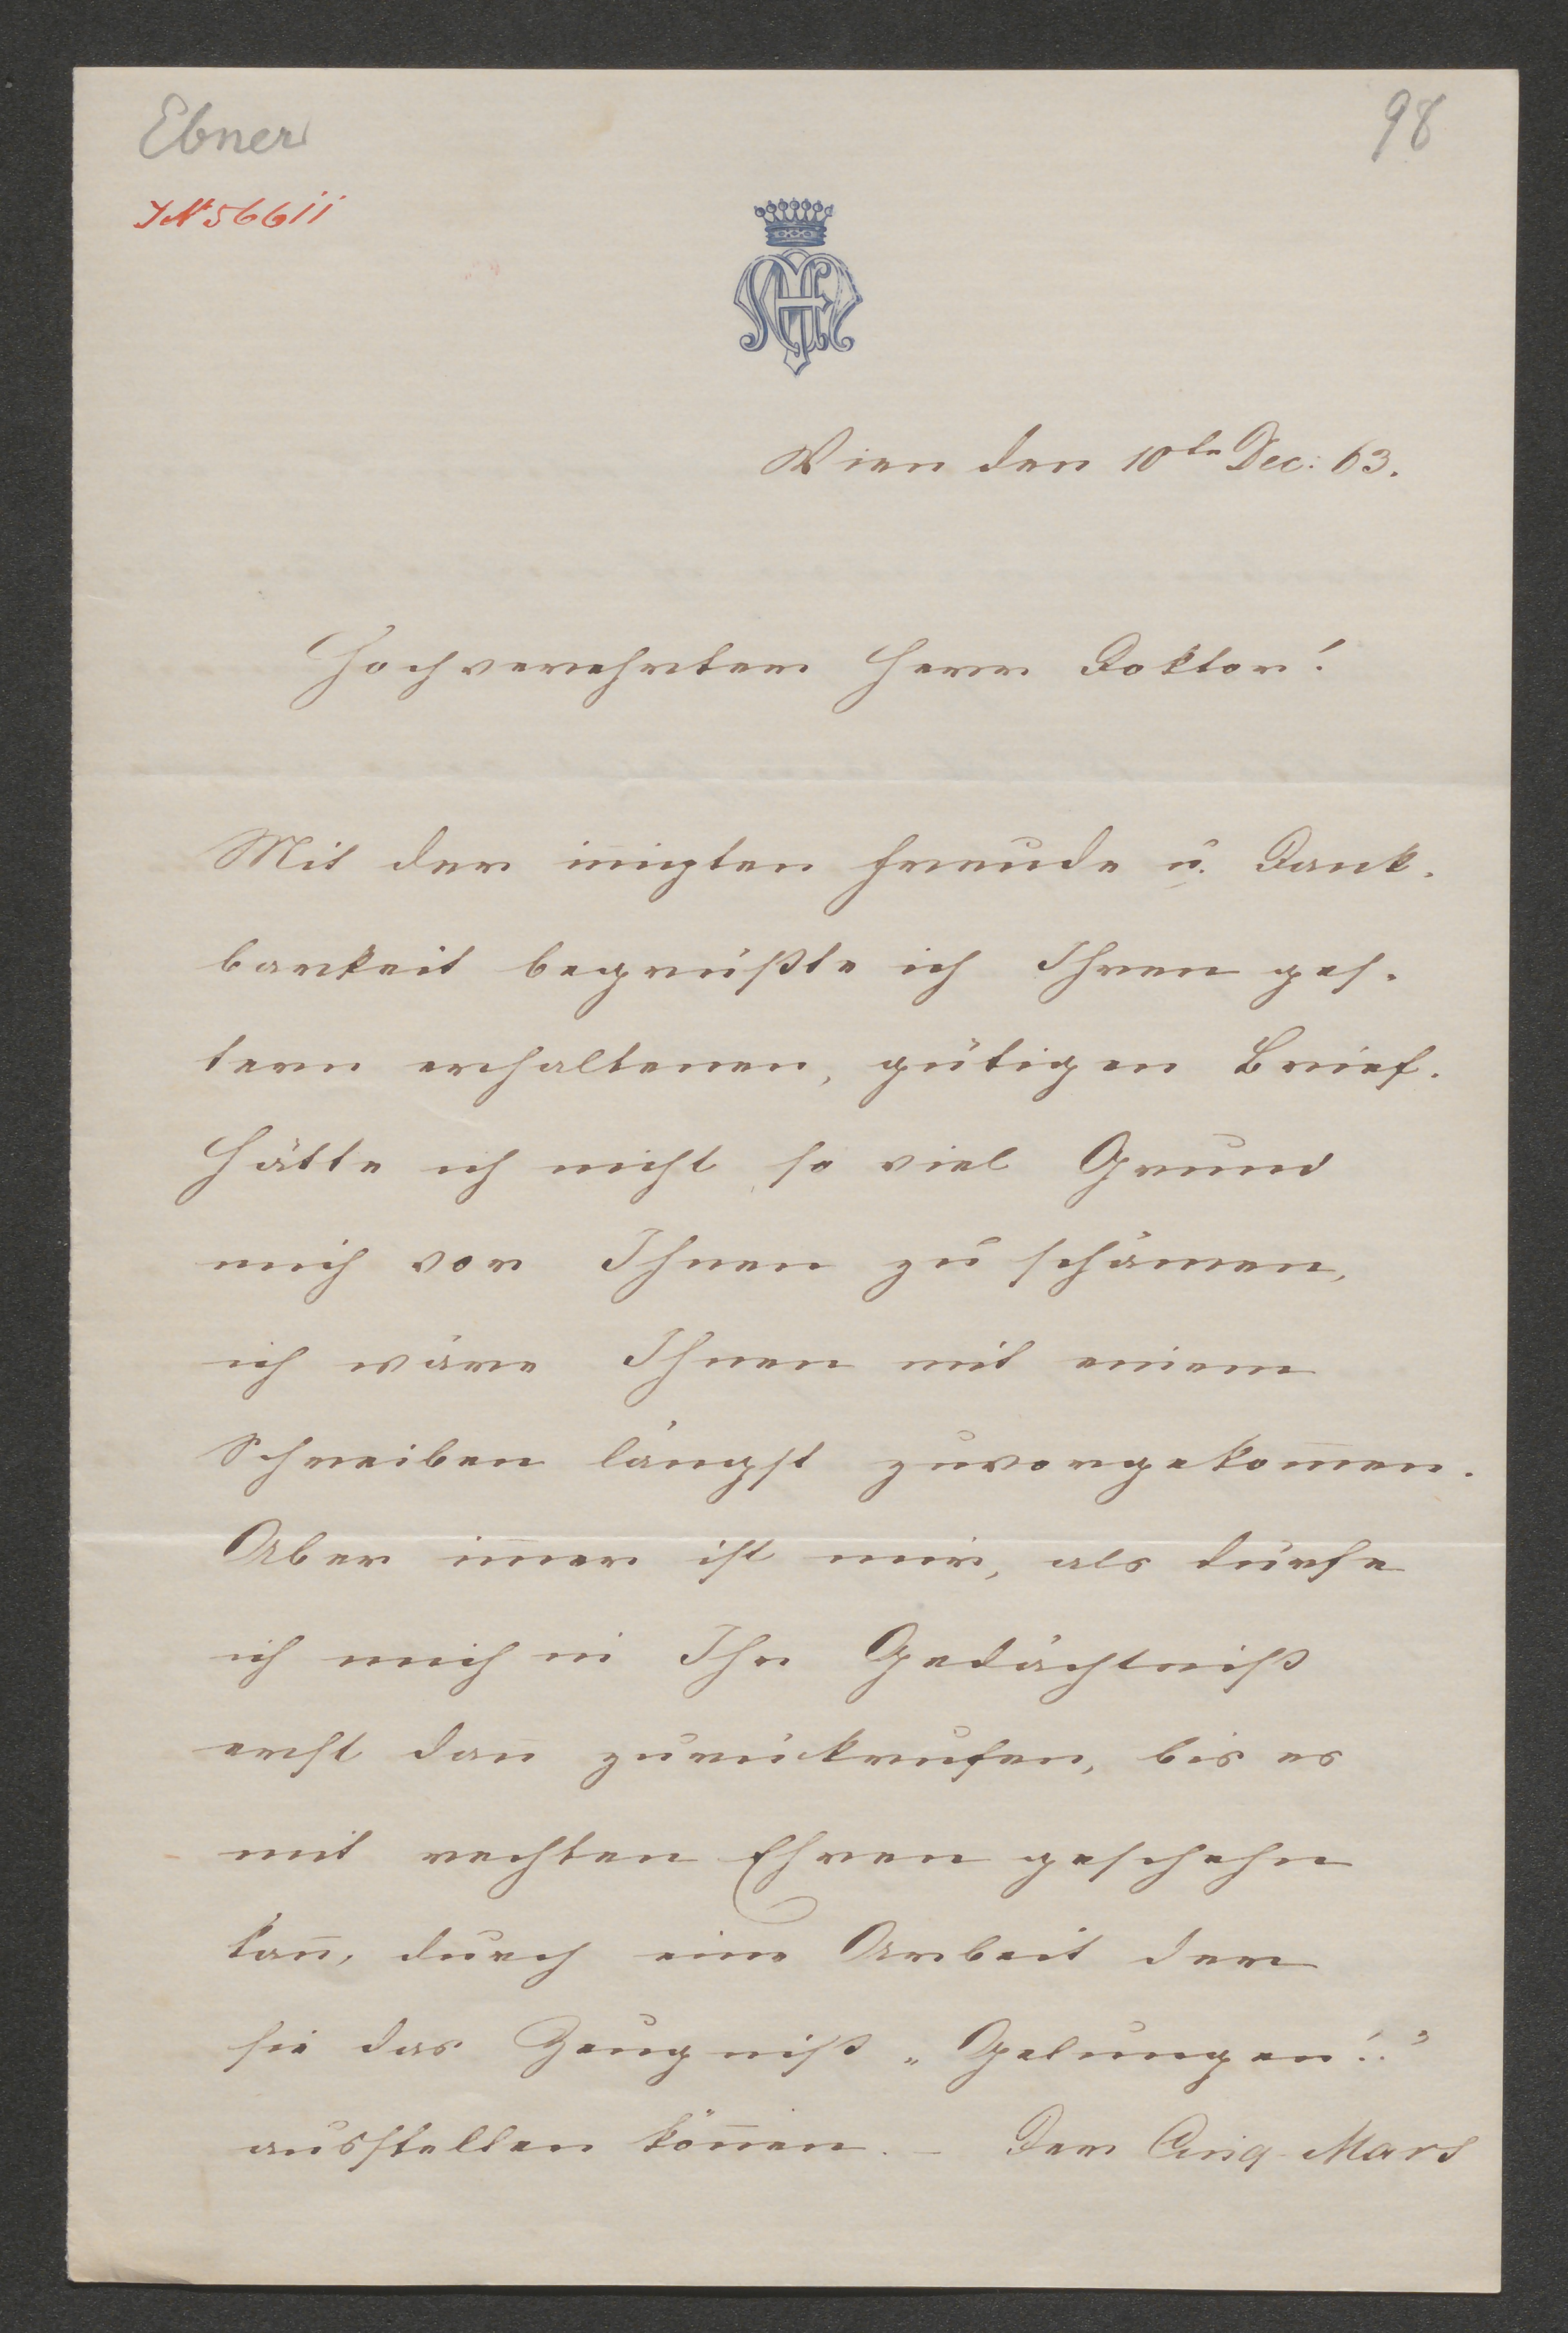 Ebner
98
JN 56611
Wien den 10te Dec: 63.
Hochverehrter Herr Doktor!
Mit der iñigsten Freude u. Dank-
barkeit begrüßte ich Ihren ges-
tern erhaltenen, gütigen Brief.
Hätte ich nicht so viel Grund
mich vor Ihnen zu schämen,
ich wäre Ihnen mit einem
Schreiben längst zuvorgekom̅en.
Aber im̅er ist mir, als dürfe
ich mich in Ihr Gedächtniß
erst dan̅ zurückrufen, bis es
mit rechten Ehren geschehn
kan̅, durch eine Arbeit der
sie das Zeugniß „Gelungen!"
ausstellen kön̅en. – Der Cinq-Mars